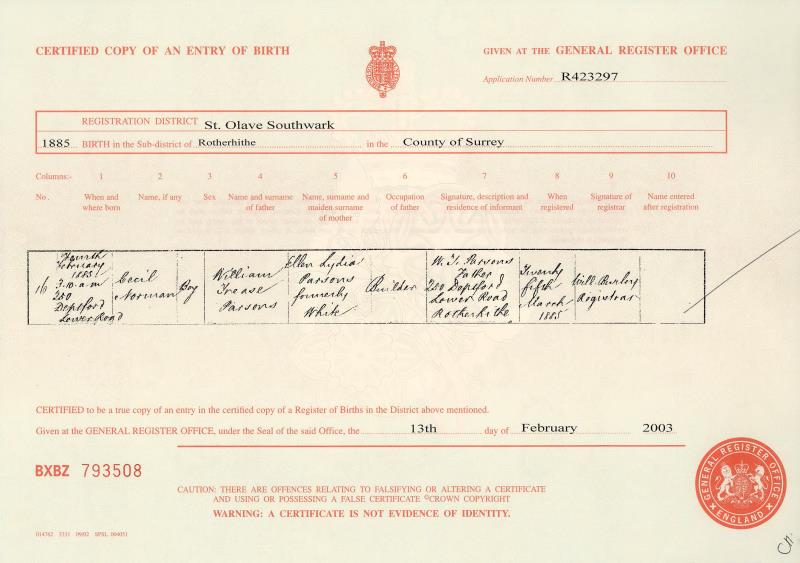 CERTIFIED COPY OF AN ENTRY OF BIRTH
GIVEN AT THE GENERAL REGISTER OFFICE
Application Number R423297
REGISTRATION DISTRICT St. Olave Southwark
1885 BIRTH in the Sub-district of Rotherhithe in the County of Surrey
Columns:- 1 2 3 4 5 6 7 8 9 10
No. When and where born Name, if any Sex Name and surname of father Name, surname and maiden surname of mother Occupation of father Signature, description and residence of informant When registered Signature of registrar Name entered after registration
16
Fourth
February
1885
3.0 a.m
200
Deptford
Lower Road
Cecil
Norman
Boy
William
Trease
Parsons
Ellen Lydia
Parsons
formerly
White
Builder
W. T. Parsons
Father
200 Deptford
Lower Road
Rotherhithe
Twenty
fifth
March
1885
Registrar
CERTIFIED to be a true copy of an entry in the certified copy of a Register of Births in the District above mentioned.
Given at the GENERAL REGISTER OFFICE, under the Seal of the said Office, the 13th day of February 2003
BXBZ 793508
CAUTION: THERE ARE OFFENCES RELATING TO FALSIFYING OR ALTERING A CERTIFICATE
AND USING OR POSSESSING A FALSE CERTIFICATE ©CROWN COPYRIGHT
WARNING: A CERTIFICATE IS NOT EVIDENCE OF IDENTITY.
GENERAL REGISTER OFFICE
ENGLAND